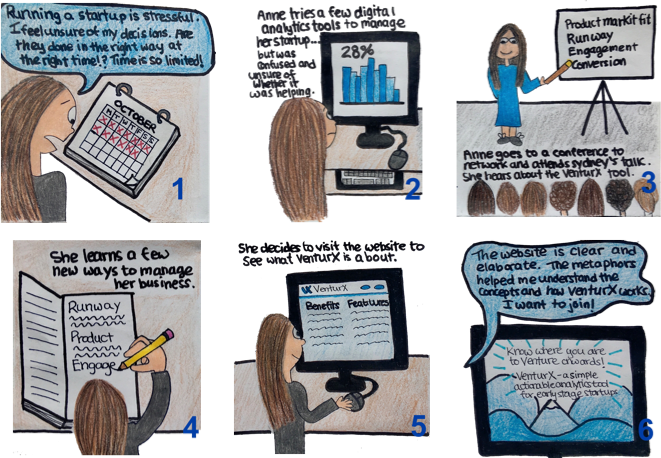 Running a startup is stressful.
I feel unsure of my decisions. Are
they done in the right way at
the right time!? Time is so limited!
OCTOBER
M T W T F S S
1
Anne tries a few digital
analytics tools to manage
her startup...
but was
confused and
unsure of
whether it
was helping.
28%
2
Product markit fit
Runway
Engagement
Conversion
Anne goes to a conference to
network and attends sydney's talk.
She hears about the VenturX tool.
3
She learns a few
new ways to manage
her business.
Runway
Product
Engage
4
She decides to visit the website to
see what VenturX is about.
VX VenturX
Benefits Features
5
The website is clear and
elaborate. The metaphors
helped me understand the
concepts and how VenturX works.
I want to join!
Know where you are
to Venture onwards!
VenturX - a simple
actionable analytics tool
for early stage startups
6